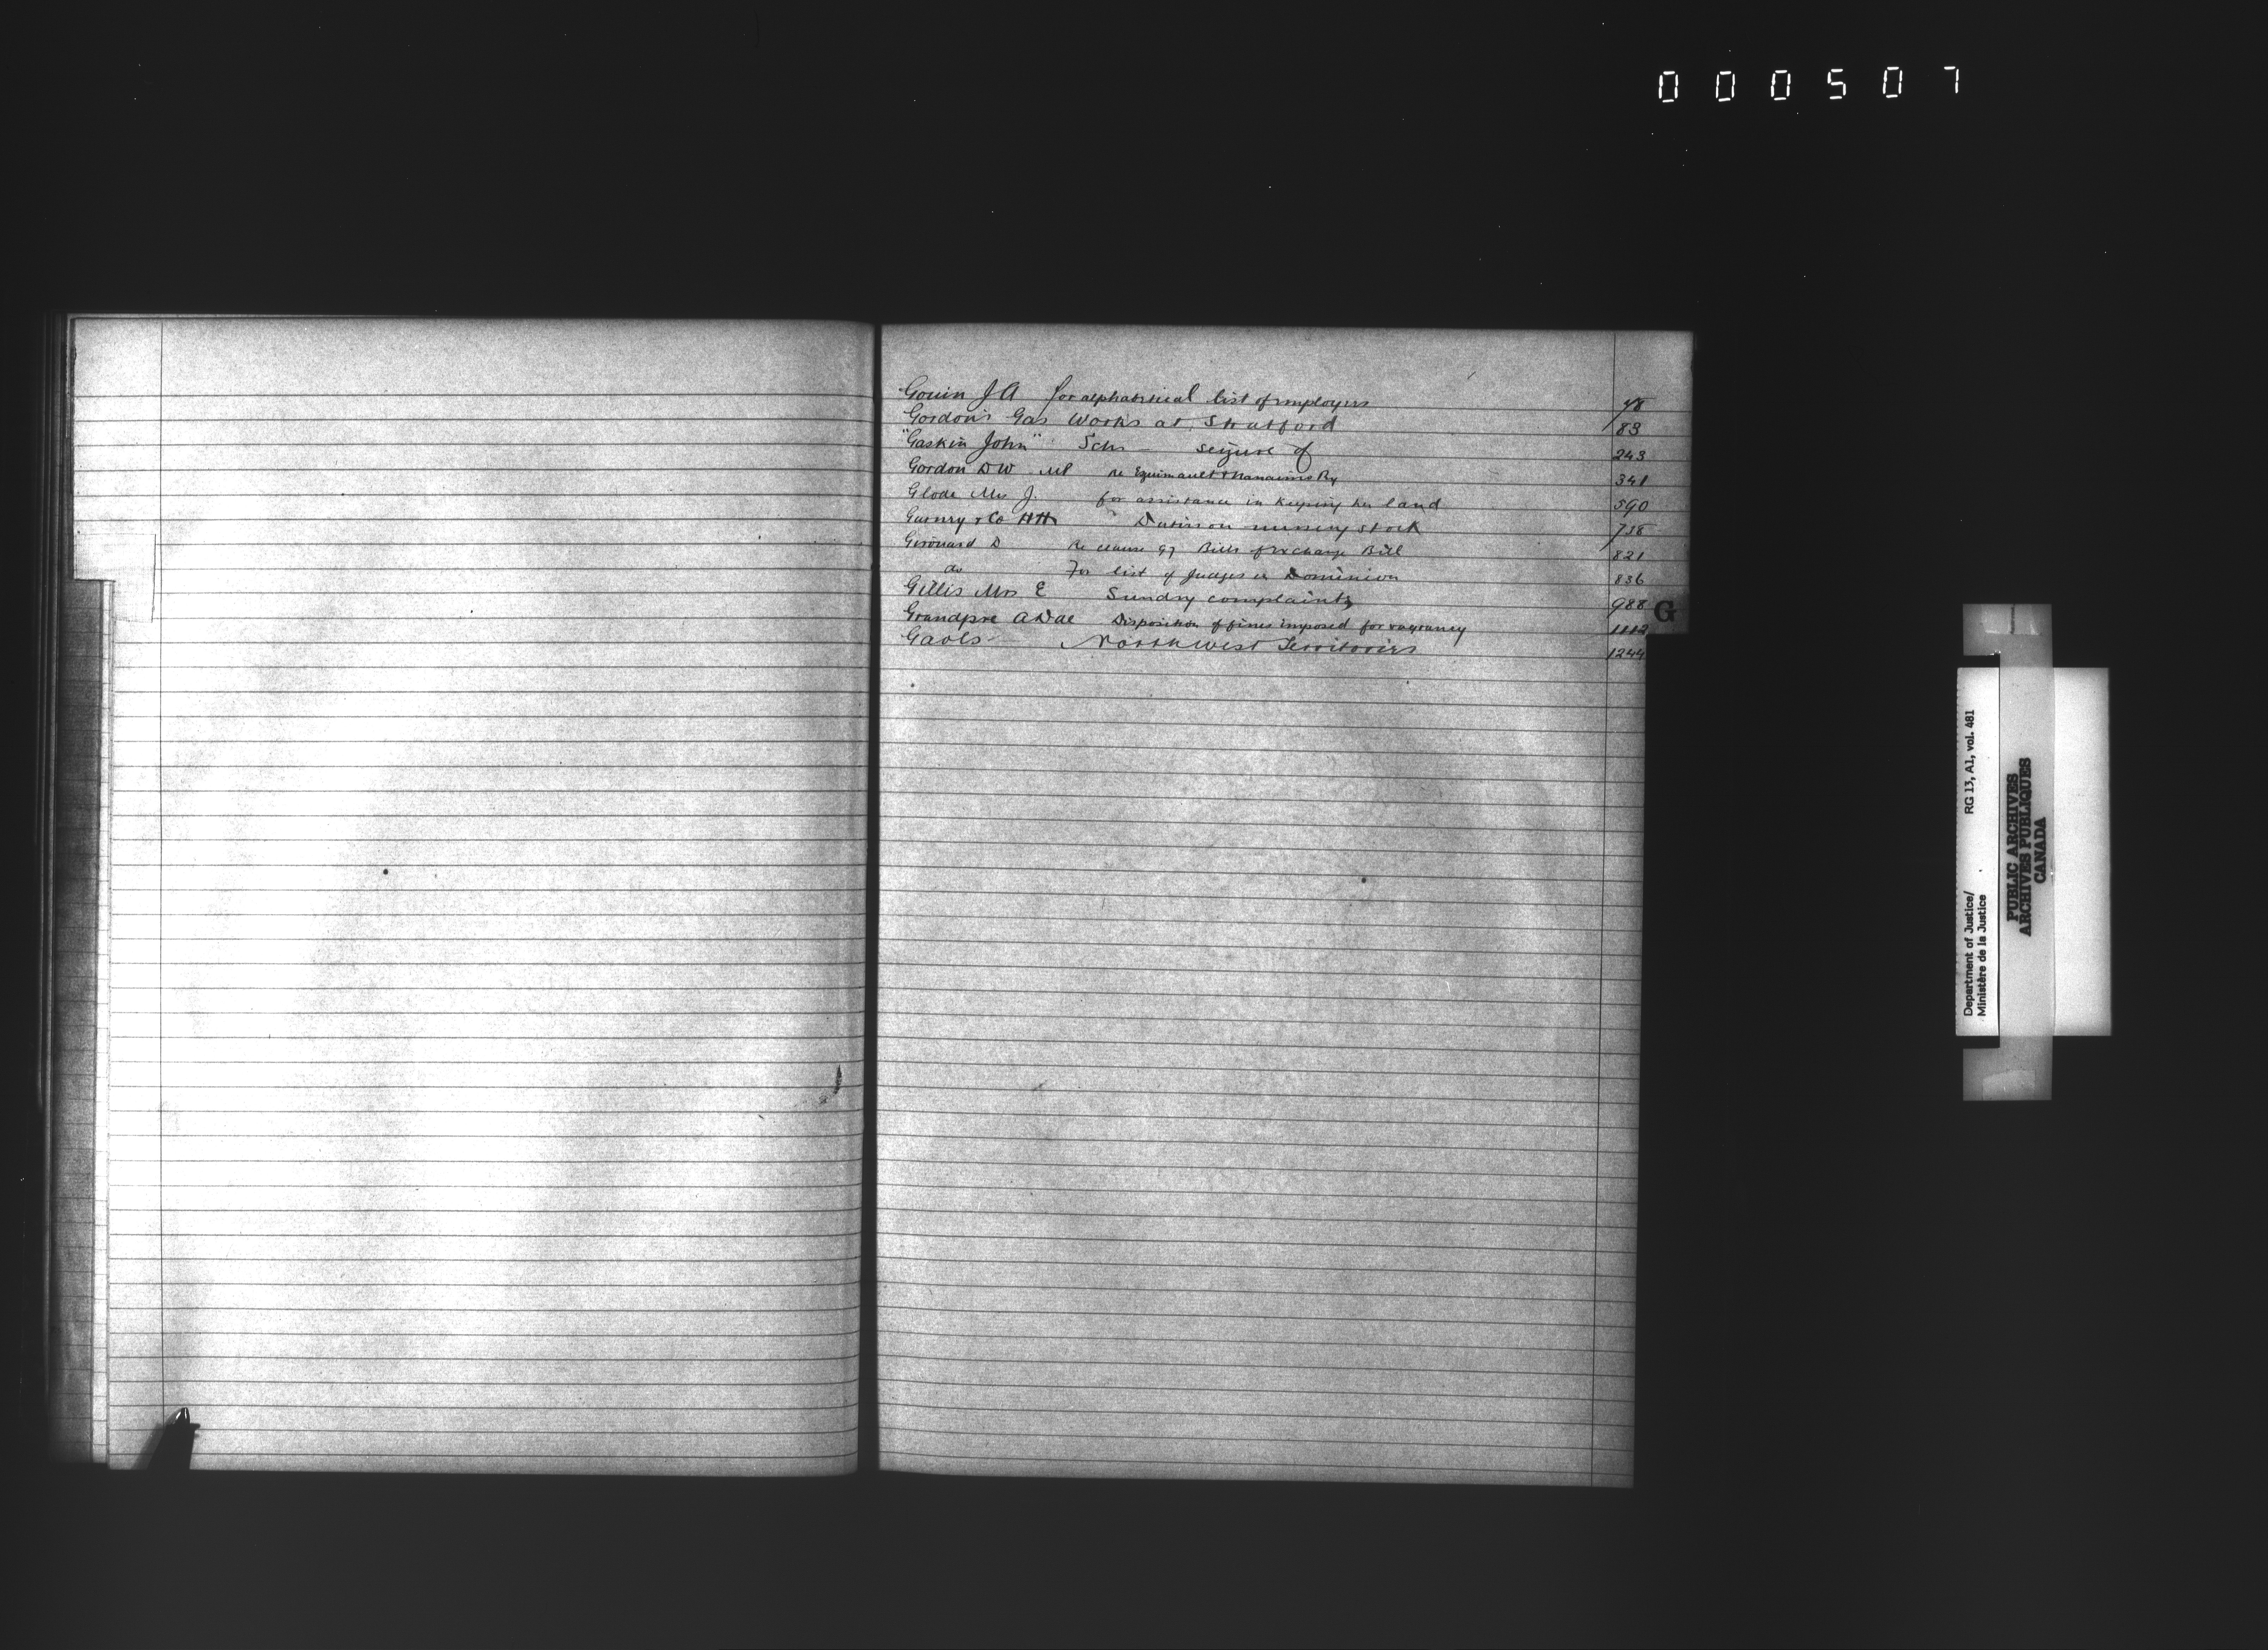 000507
Gouin J A for alphabetical list of employees 48
Gordon's Gas Works at Stratford 83
"Gaskin John" Schr - seizure of 243
Gordon D W MP re Equimault & Nanaimo Ry 341
Glode Mrs J. for assistance in keeping her land 590
Gurnry & Co HH Duties on nursery stock 738
Girouard D Re clause 97 Bills of Exchange Bill 821
do For list of Judges in Dominion 836
Gillis Mrs E Sundry complaints 988
Grandpre A D de Disposition of fines imposed for vagrancy 1112
Gaols North West Territories 1244
G
Department of Justice/ RG 13, A1, vol. 481
Ministère de la Justice
PUBLIC ARCHIVES
ARCHIVES PUBLIQUES
CANADA